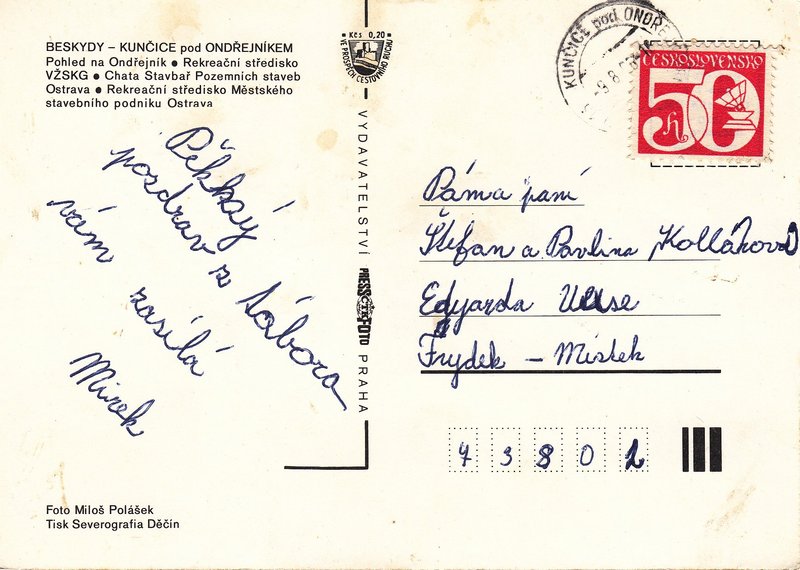 BESKYDY – KUNČICE pod ONDŘEJNÍKEM
Pohled na Ondřejník ● Rekreační středisko
VŽSKG ● Chata Stavbař Pozemních staveb
Ostrava ● Rekreační středisko Městského
stavebního podniku Ostrava
Kčs 0,20
VE PROSPĚCH CESTOVNÍHO RUCHU
KUNČICE pod ONDŘEJ
-9.8.
ČESKOSLOVENSKO
50
h
Pěkkný
pozdrav z tábora
vám zasílá
Mirek
VYDAVATELSTVÍ PRESSFOTO PRAHA
ČTK
Páma paní
Štefan a Pavlina Kollákovó
Edyarda
Frýdek – Místek
73802
Foto Miloš Polášek
Tisk Severografia Děčín